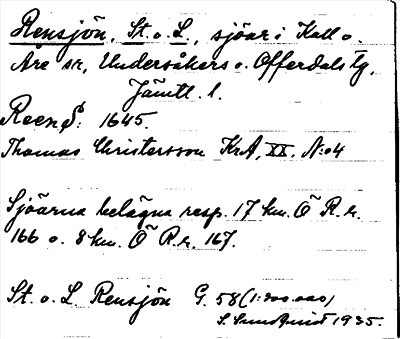 Rensjön, St. o. L., sjöar i Kall o.
Åre sn, Undersåkers o. Offerdals tg,
Jämtl. l.
Reen S: 1645.
Thomas Christersson KrA, XX. N:o 4
Sjöarna belägna resp. 17 km. Ö R.r.
166 o. 8 km. Ö R.r. 167.
St. o. L Rensjön G. 58 (1:200.000)
S. Sundquist 1935.